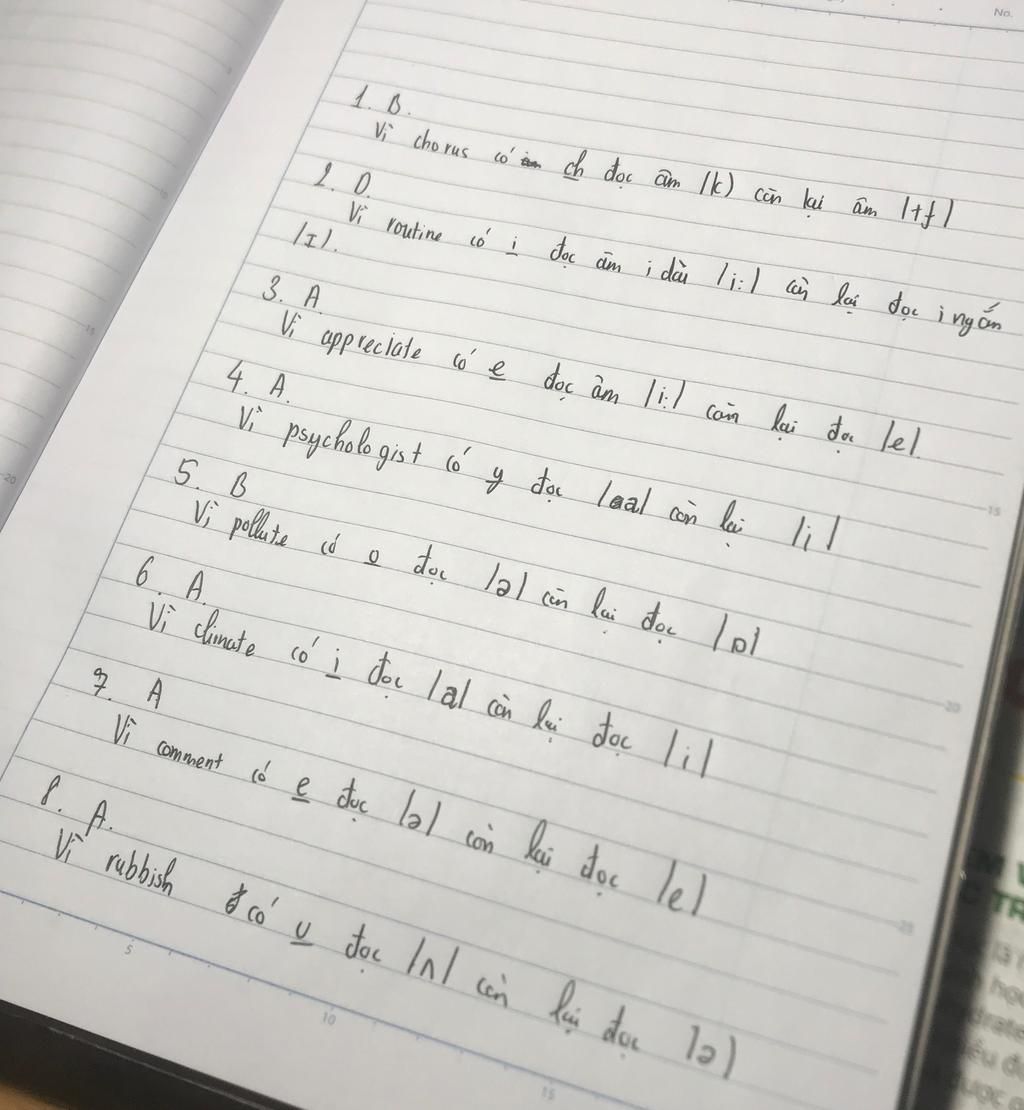 No.
1. B.
Vì chorus có ch đọc âm /k/ còn lại âm /tʃ/
2. D.
Vì routine có i đọc âm i dài /i:/ còn lại đọc i ngắn
/I/.
3. A
Vì appreciate có e đọc âm /i:/ còn lại đọc /e/.
4. A.
Vì psychologist có y đọc /aa/ còn lại /i/
5. B
Vì pollute có o đọc /ə/ còn lại đọc /ɒ/
6. A.
Vì climate có i đọc /a/ còn lại đọc /i/
7. A
Vì comment có e đọc /ə/ còn lại đọc /e/
8. A.
Vì rubbish có u đọc /ʌ/ còn lại đọc /ə/
5
10
15
15
20
25
20